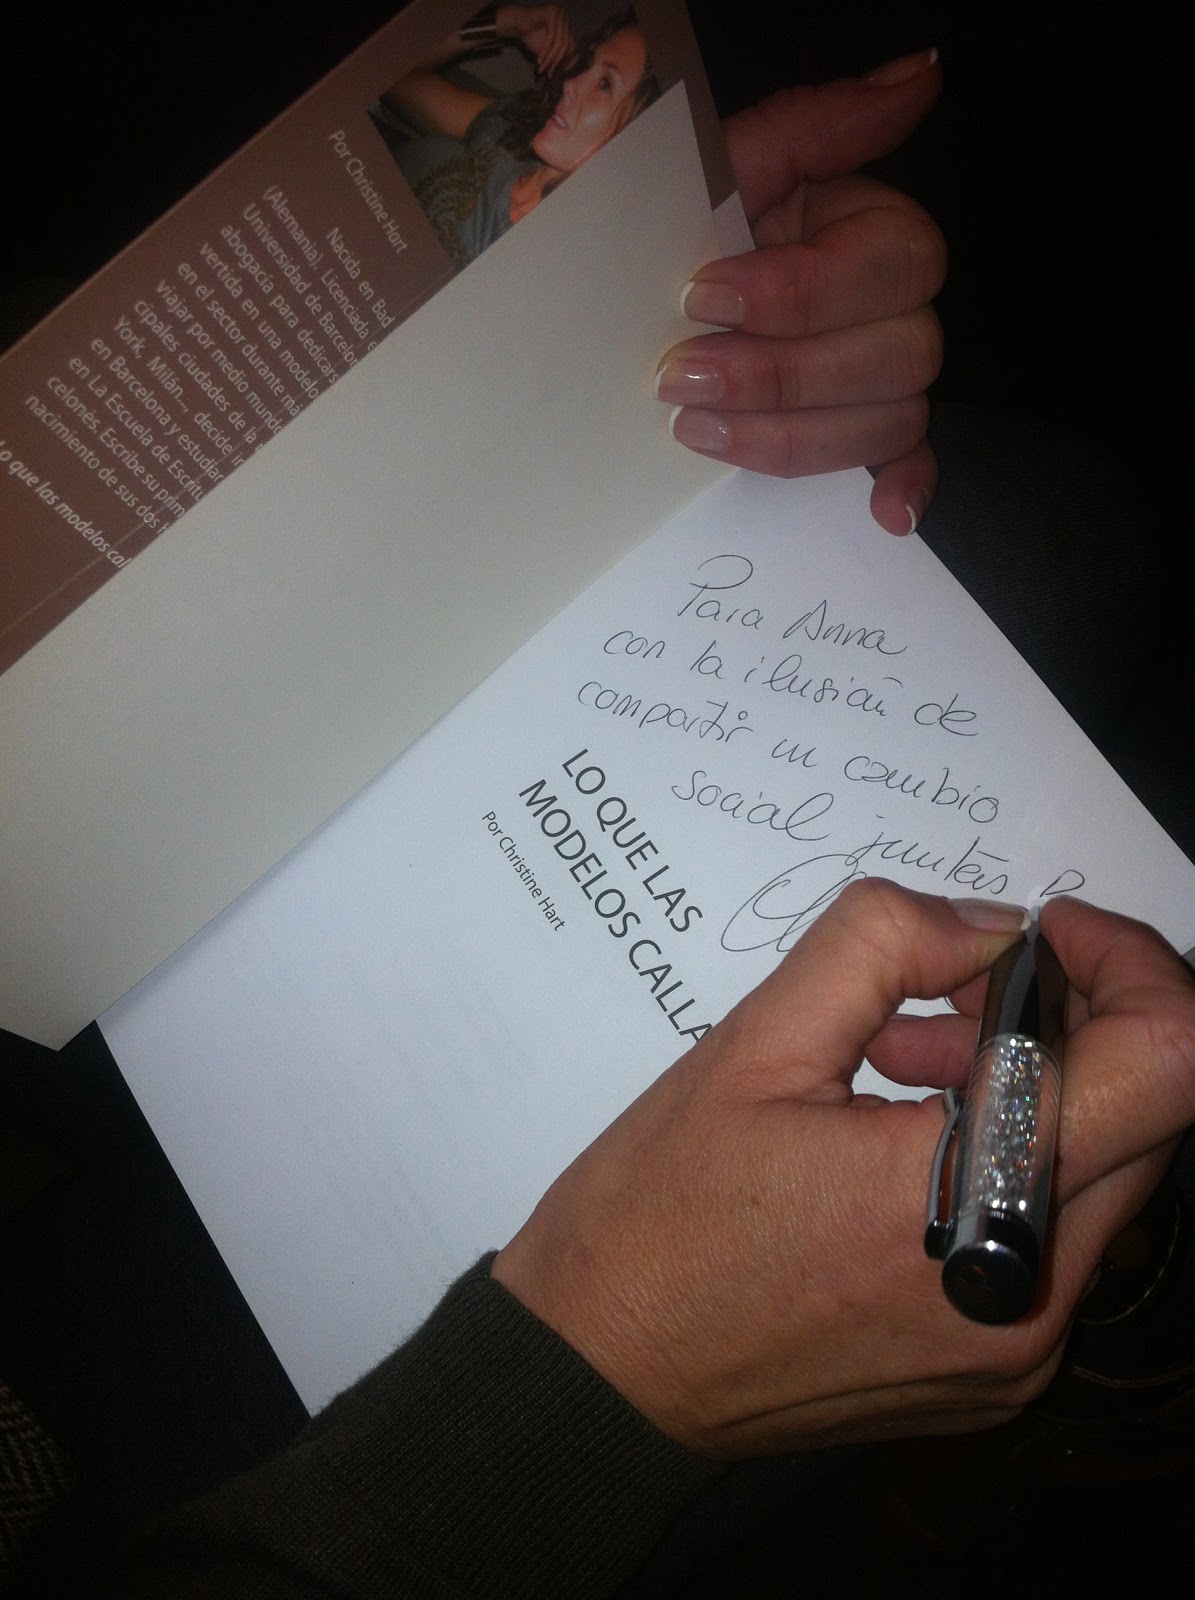 Por Christine Hart
Nacida en Bad
(Alemania). Licenciada e
Universidad de Barcelon
abogacía para dedicars
vertida en una modelo
en el sector durante má
viajar por medio mund
cipales ciudades de la
York, Milán..., decide in
en Barcelona y estudiar
en La Escuela de Escritu
celonés. Escribe su prim
nacimiento de sus dos h
Lo que las modelos cal
Para Anna
con la ilusión de
compartir un cambio
social juntas
LO QUE LAS
MODELOS CALLA
Por Christine Hart